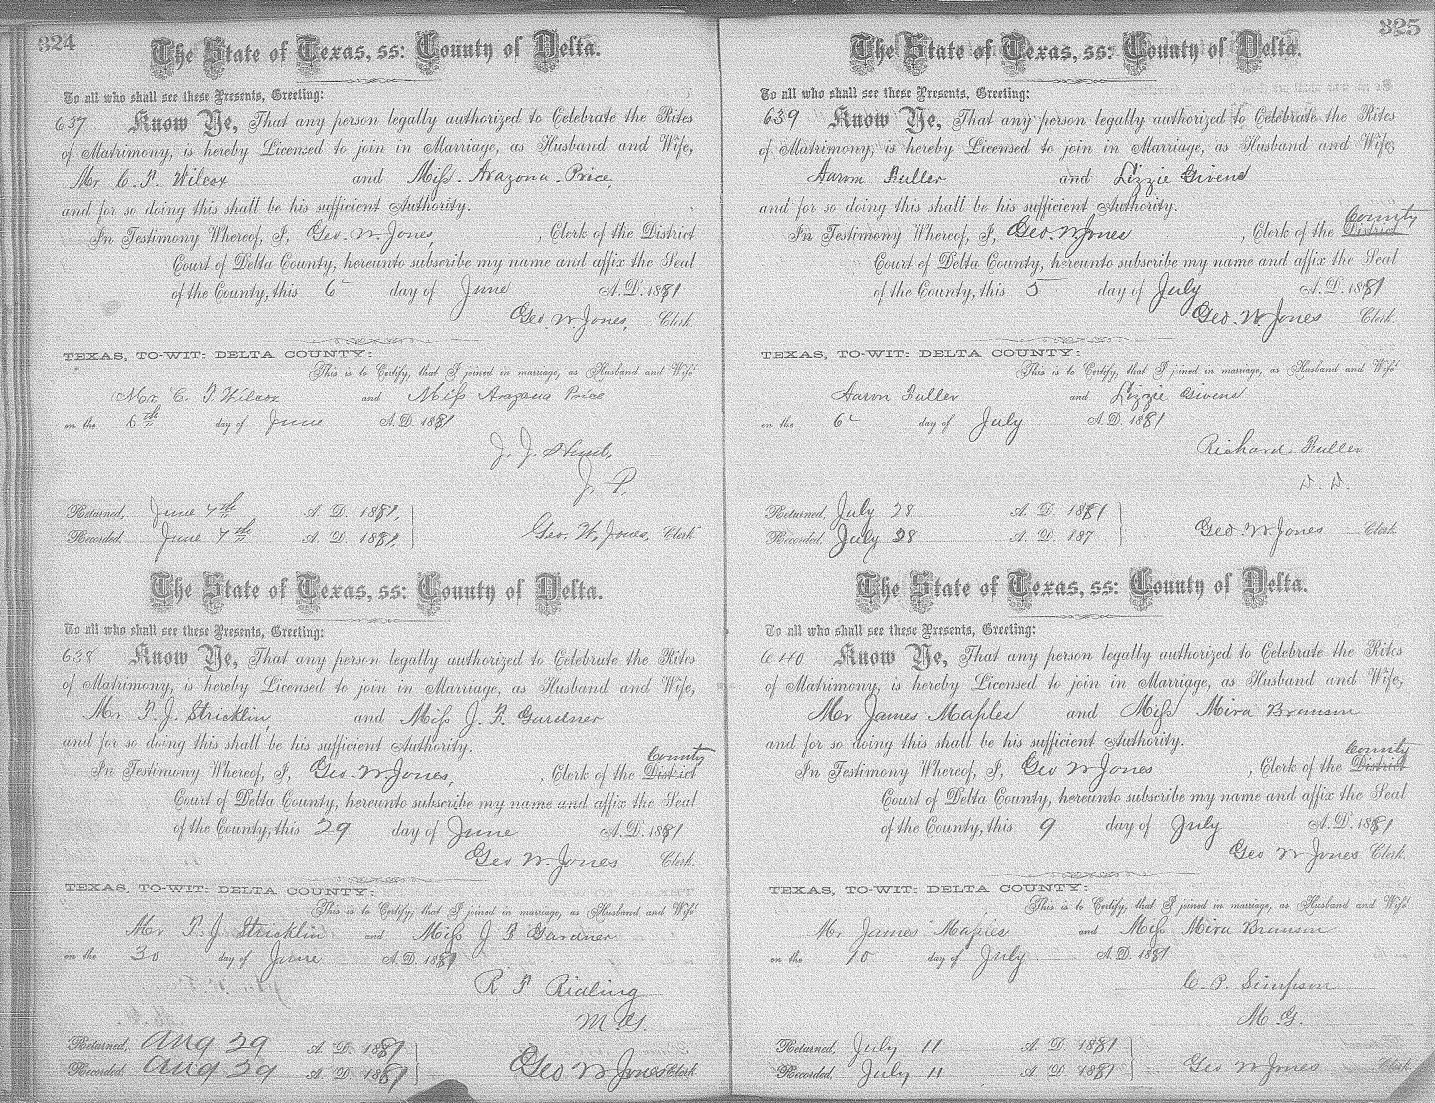 324
The State of Texas, ss: County of Delta.
To all who shall see these Presents, Greeting:
637 Know Ye, That any person legally authorized to Celebrate the Rites
of Matrimony, is hereby Licensed to join in Marriage, as Husband and Wife,
Mr C. P. Wilcox and Miss. Arazona. Price,
and for so doing this shall be his sufficient Authority.
In Testimony Whereof, I, Geo. W. Jones, , Clerk of the District
Court of Delta County, hereunto subscribe my name and affix the Seal
of the County, this 6 day of June A.D. 1881
Geo W Jones, Clerk.
TEXAS, TO-WIT: DELTA COUNTY:
This is to Certify, that I joined in marriage, as Husband and Wife
Mr. C. P. Wilcox and Miss Arazona Price
on the 6th day of June A.D. 1881
J. J.
J. P.
Returned, June 7th A. D. 1881,
Recorded, June 7th A. D. 1881, Geo. W. Jones, Clerk
The State of Texas, ss: County of Delta.
To all who shall see these Presents, Greeting:
638 Know Ye, That any person legally authorized to Celebrate the Rites
of Matrimony, is hereby Licensed to join in Marriage, as Husband and Wife,
Mr P. J. Stricklin, and Miss J. F. Gardner
and for so doing this shall be his sufficient Authority.
In Testimony Whereof, I, Geo. W Jones, , Clerk of the District County
Court of Delta County, hereunto subscribe my name and affix the Seal
of the County, this 29 day of June A.D. 1881
Geo W. Jones Clerk.
TEXAS, TO-WIT: DELTA COUNTY:
This is to Certify, that I joined in marriage, as Husband and Wife
Mr P. J Stricklin and Miss J F Gardner
on the 30 day of June A.D. 1881
R F Ridling
M G.
Returned, Aug 29 A. D. 1881
Recorded, Aug 29 A. D. 1881 Geo W Jones Clerk
325
The State of Texas, ss: County of Delta.
To all who shall see these Presents, Greeting:
639 Know Ye, That any person legally authorized to Celebrate the Rites
of Matrimony, is hereby Licensed to join in Marriage, as Husband and Wife,
Aaron Fuller and Lizzie Givens
and for so doing this shall be his sufficient Authority.
In Testimony Whereof, I, Geo. W Jones , Clerk of the District County
Court of Delta County, hereunto subscribe my name and affix the Seal
of the County, this 5 day of July A.D. 1881
Geo. W. Jones Clerk.
TEXAS, TO-WIT: DELTA COUNTY:
This is to Certify, that I joined in marriage, as Husband and Wife
Aaron Fuller and Lizzie Givens
on the 6 day of July A.D. 1881
Richard. Fuller
D. D.
Returned, July 28 A. D. 1881
Recorded, July 28 A. D. 187 Geo. W Jones Clerk
The State of Texas, ss: County of Delta.
To all who shall see these Presents, Greeting:
640 Know Ye, That any person legally authorized to Celebrate the Rites
of Matrimony, is hereby Licensed to join in Marriage, as Husband and Wife,
Mr James Maples and Miss Mira Bramson
and for so doing this shall be his sufficient Authority.
In Testimony Whereof, I, Geo W Jones , Clerk of the District County
Court of Delta County, hereunto subscribe my name and affix the Seal
of the County, this 9 day of July A.D. 1881
Geo W Jones Clerk.
TEXAS, TO-WIT: DELTA COUNTY:
This is to Certify, that I joined in marriage, as Husband and Wife
Mr James Maples and Miss Mira Bramson
on the 10 day of July A.D. 1881
C. P. Simpson
M. G.
Returned, July 11 A. D. 1881
Recorded, July 11 A. D. 1881 Geo W Jones Clerk.